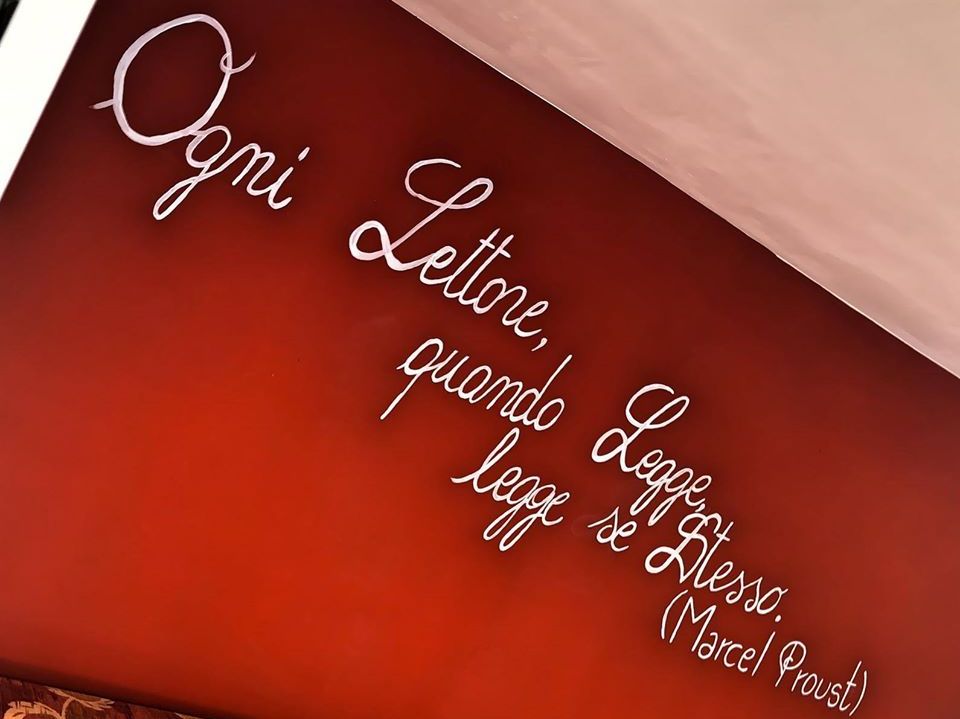 Ogni Lettore,
quando Legge,
legge se Stesso.
(Marcel Proust)